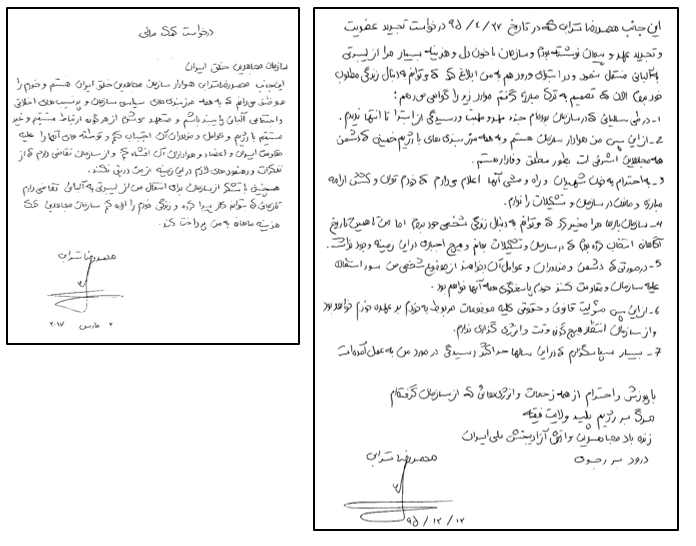 درخواست کمک مالی
سازمان مجاهدین خلق ایران
این جانب محمدرضا ترابی هوادار سازمان مجاهدین خلق ایران هستم و خودم را
موظف میدانم که به همه مرزبندی های سیاسی سازمان و پرنسیب های اخلاقی
و اجتماعی آلبانی پایبند باشم و متعهد میشوم از هرگونه ارتباط مستقیم و غیر
مستقیم با رژیم و عوامل و مزدوران آن اجتناب کنم و توطئه های آنها را علیه
مقاومت ایران و اعضاء و هواداران آن افشاء کنم و از سازمان تقاضا دارم که از
تذکرات و رهنمودهای لازم در این زمینه از من دریغ نکند.
همچنین با تشکر از سازمان برای انتقال من از لیبرتی به آلبانی تقاضا دارم
تا زمانی که بتوانم کار پیدا کرده و زندگی خودم را اداره کنم سازمان مجاهدین کمک
هزینه ماهانه به من پرداخت کند.
محمدرضا ترابی
۲ مارس ۲۰۱۷
این جانب محمدرضا ترابی که در تاریخ ۹۵/۴/۲۷ درخواست تجدید عضویت
و تجدید عهد و پیمان نوشته بودم و سازمان با خون دل و هزینه بسیار مرا از لیبرتی
به آلبانی منتقل نمود و در ابتدای ورود هم به من ابلاغ کرد که میتوانم به دنبال زندگی مطلوب
خود بروم الان که تصمیم به ترک مبارزه گرفتم موارد زیر را گواهی میدهم:
۱- در طی سالهایی که در سازمان بودم جز مهر و محبت و رسیدگی از ابتدا تا انتها ندیدم.
۲- از این پس من هوادار سازمان هستم و به همه مرزبندی های با رژیم خمینی که دشمن
همه مجاهدین اشرفی است بطور مطلق وفادار هستم.
۳- به احترام به خون شهیدان و راه و مشی آنها اعلام میدارم که خودم توان و کشش ادامه
مبارزه و ماندن در سازمان و تشکیلات را ندارم.
۴- سازمان بارها مرا مخیر کرد که میتوانم به دنبال زندگی شخصی خود بروم اما من تا همین تاریخ
آگاهانه انتخاب کرده بودم که در سازمان و تشکیلات بمانم و هیچ اجباری در این زمینه وجود نداشت.
۵- در صورتی که دشمن و مزدوران و عوامل آن بخواهند از موضوع شخصی من سوء استفاده
علیه سازمان و مقاومت کنند خودم پاسخگوی همه آنها خواهم بود.
۶- از این پس مسئولیت قانونی و حقوقی کلیه موضوعات مربوط به خودم بر عهده خودم خواهد بود
و از سازمان انتظار هیچ گونه وقت و انرژی گذاری ندارم.
۷- بسیار سپاسگزارم که در این سالها حداکثر رسیدگی در مورد من به عمل آمده است
با پوزش و احترام از همه زحمات و انرژی هائی که از سازمان گرفته‌ام
مرگ بر رژیم پلید ولایت فقیه
زنده باد مجاهدین و ارتش آزادیبخش ملی ایران
درود بر رجوی
محمدرضا ترابی
۹۵/۱۲/۱۲